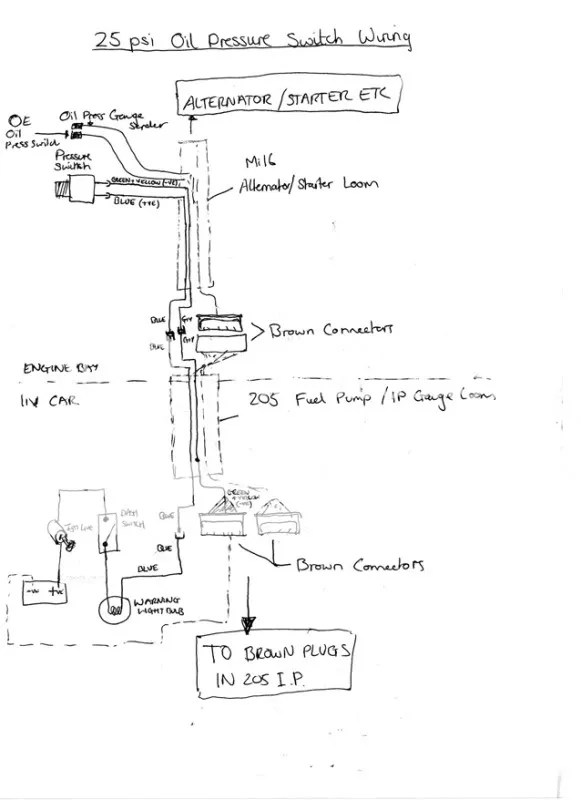 25 psi Oil Pressure Switch Wiring
ALTERNATOR/STARTER ETC
OE
Oil
Press Switch
Oil Press Gauge
Sender
Pressure
Switch
GREEN + YELLOW (-VE)
BLUE (+VE)
Mi16
Alternator/Starter Loom
BLUE
G+Y
BLUE
G+Y
Brown Connectors
ENGINE BAY
IN CAR
205 Fuel Pump/IP Gauge Loom
GREEN
+ YELLOW
(-VE)
BLUE
BLUE
BLUE
DASH
SWITCH
-ve
+ve
WARNING
LIGHT BULB
Brown Connectors
TO BROWN PLUGS
IN 205 I.P.